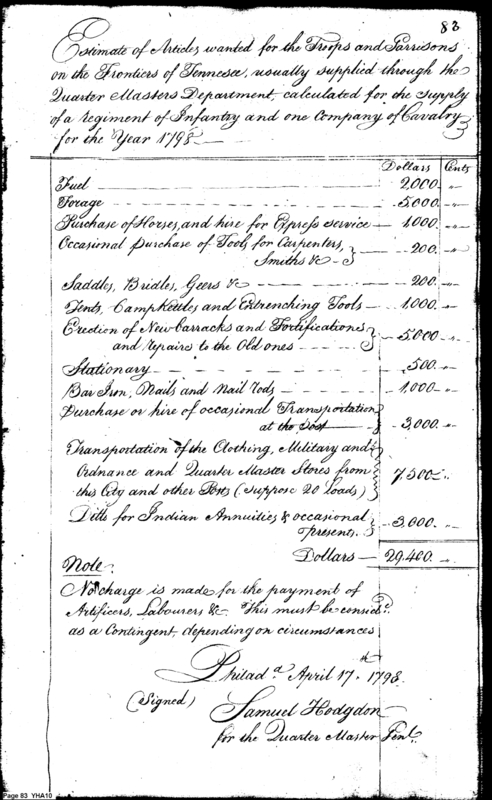 83
Estimate of Articles wanted for the Troops and Garrisons
on the Frontiers of Tennesee, usually supplied through the
Quarter Masters Department, calculated for the Supply
of a Regiment of Infantry and one Company of Cavalry
for the Year 1798
Dollars Cents
Fuel 2,000 "
Forage 5,000 "
Purchase of Horses, and hire for Express service 1,000 "
Occasional Purchase of Tools for Carpenters,
Smiths &c 200 "
Saddles, Bridles, Geers &c 200 "
Tents, Campkettles and Entrenching Tools 1,000 "
Erection of New barracks and Fortifications
and repairs to the Old ones 5,000 "
Stationary 500 "
Bar Iron, Nails and Nail rods 1,000 "
Purchase or hire of occasional Transportation
at the Post 3,000 "
Transportation of the Clothing, Military and
Ordnance and Quarter Master Stores from
this City and other Posts (Suppose 20 Loads) 7,500
Ditto for Indian Annuities & occasional
presents. 3,000 "
Dollars 29,400 "
Note
No charge is made for the payment of
Artificers, Labourers &c This must be considd.
as a Contingent, depending on circumstances
Philada. April 17th. 1798.
(Signed) Samuel Hodgdon
for the Quarter Master Genl.
Page 83 YHA10